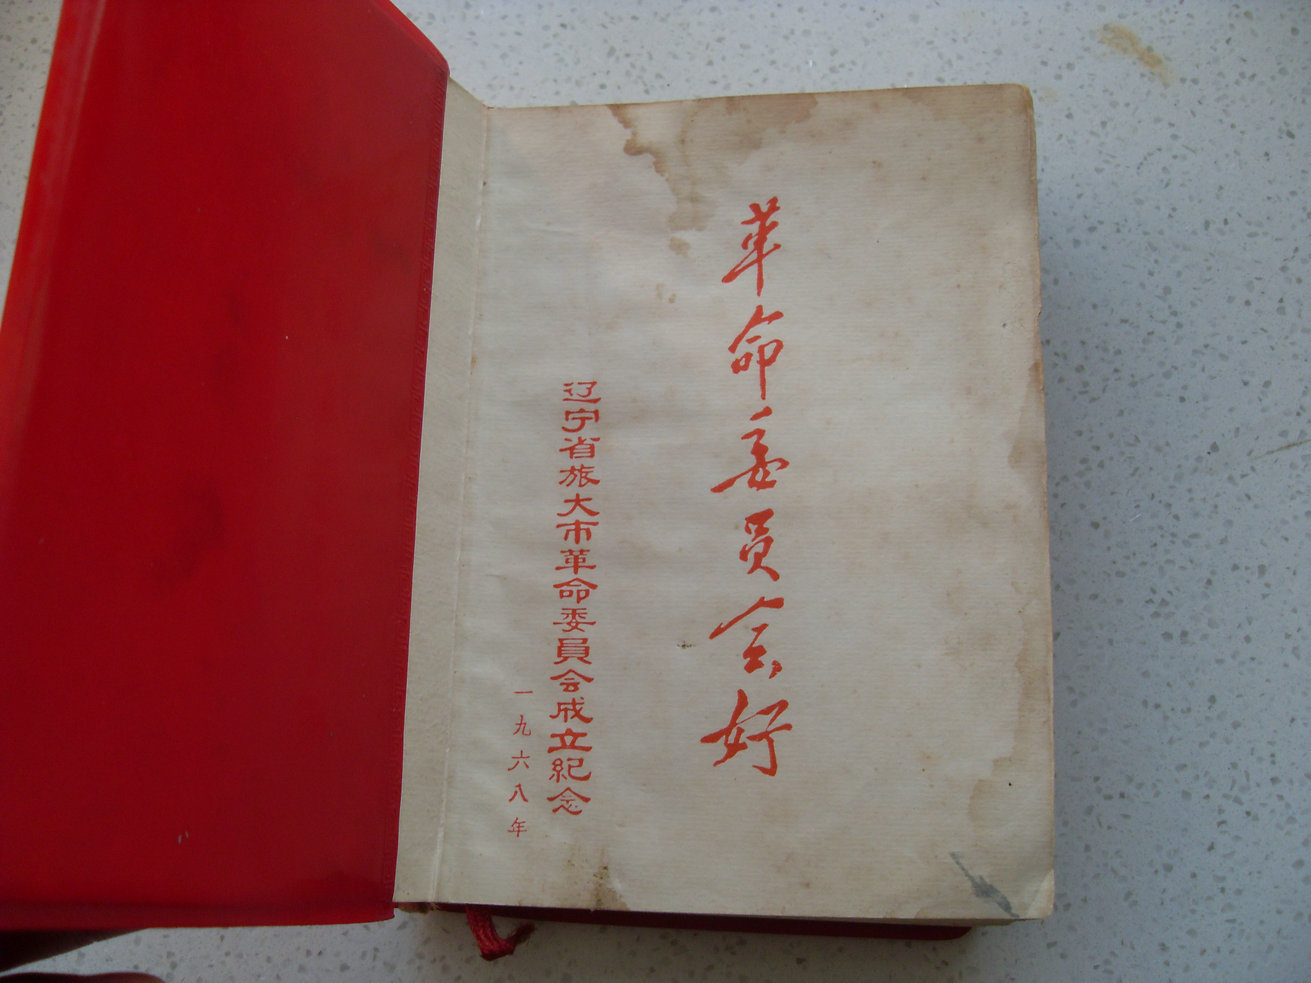 革命委员会好
辽宁省旅大市革命委員会成立紀念
一九六八年